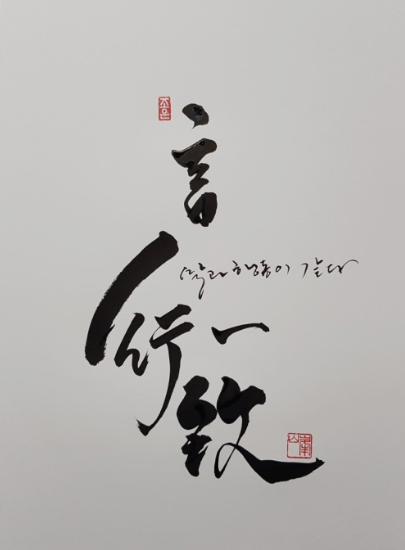 言
말과 행동이 같다
行一
致